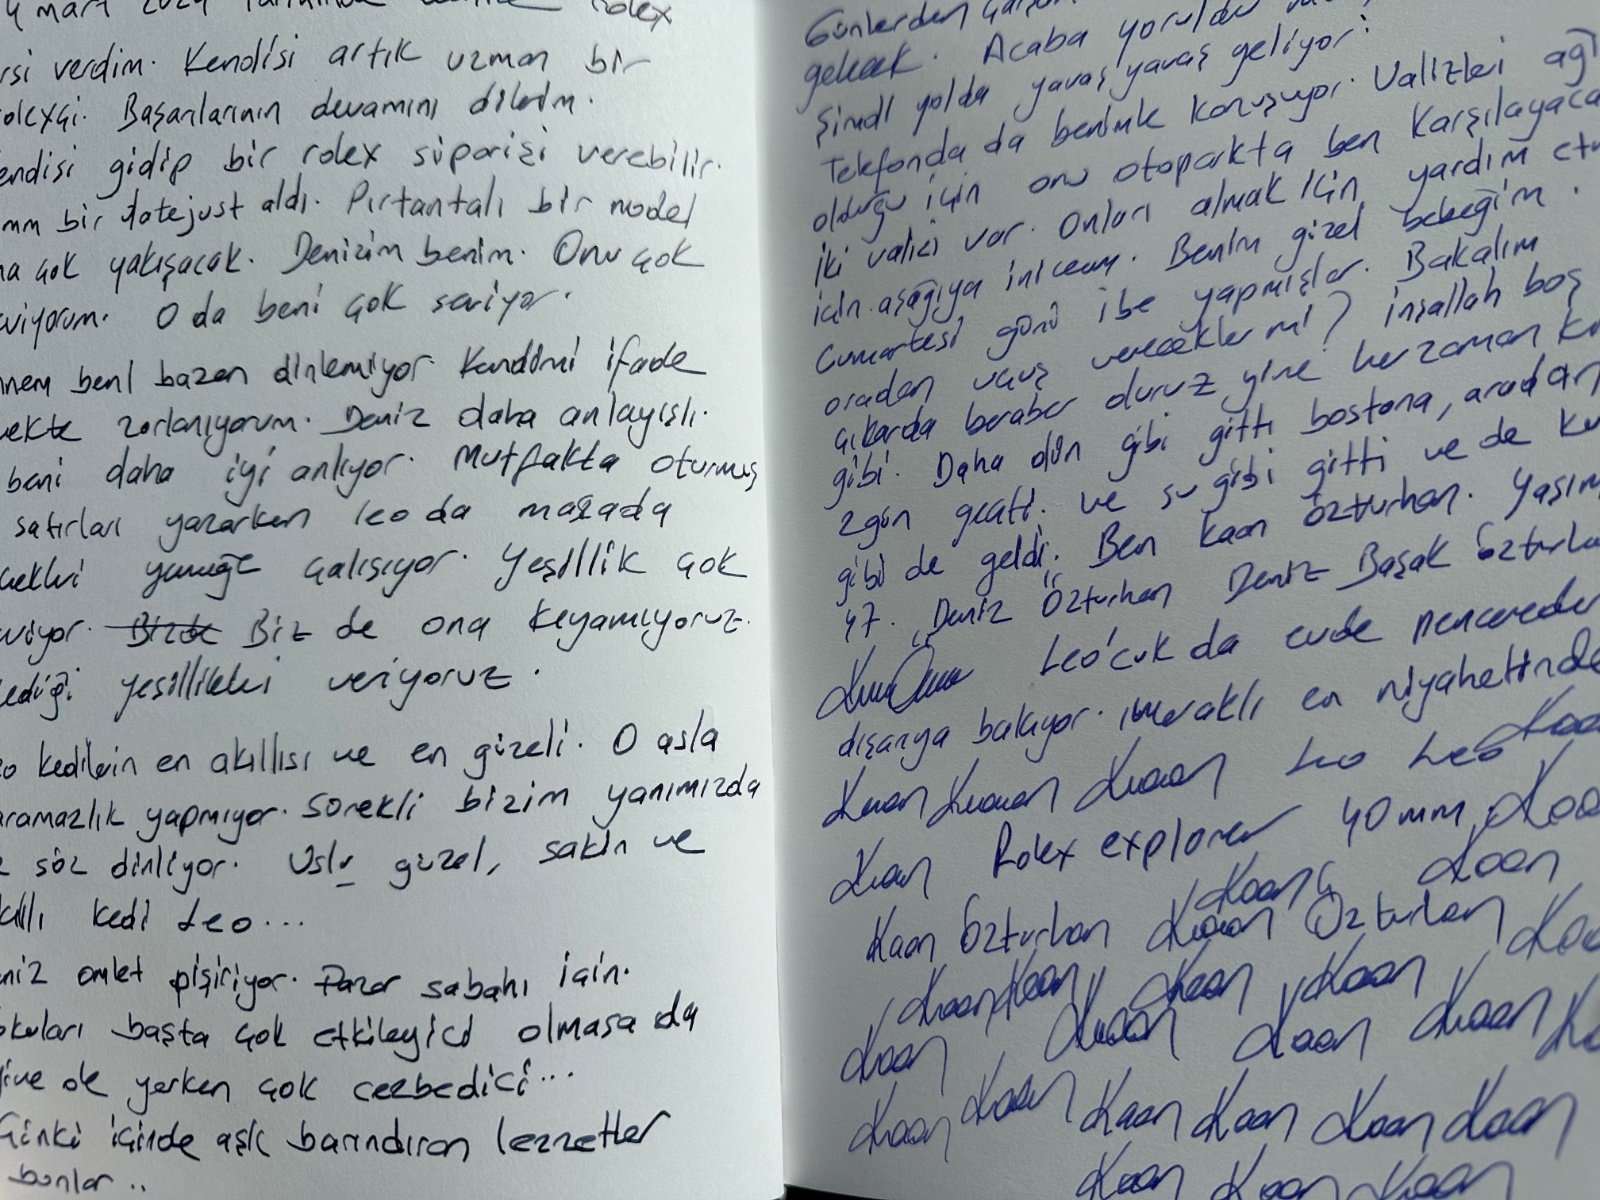 4 mart 2024 rolex
rsi verdim. Kendisi artık uzman bir
olexçi. Başarılarının devamını dilerim.
endisi gidip bir rolex siparişi verebilir.
mm bir datejust aldı. Pırtantalı bir model
na çok yakışacak. Denizim benim. Onu çok
eviyorum. O da beni çok seviyor.
nnem beni bazen dinlemiyor. Kendimi ifade
mekte zorlanıyorum. Deniz daha anlayışlı.
beni daha iyi anlıyor. Mutfakta oturmuş
satırları yazarken leo da masada
çekleri yemeğe çalışıyor. Yeşillik çok
eviyor. Bizde Biz de ona kıyamıyoruz.
tediği yeşillikleri veriyoruz.
eo kedilerin en akıllısı ve en güzeli. O asla
aramazlık yapmıyor. Sürekli bizim yanımızda
z söz dinliyor. Uslu güzel, sakin ve
kıllı kedi Leo...
eniz omlet pişiriyor. Pazar sabahı için.
okuları başta çok etkileyici olmasa da
yine de yerken çok cezbedici...
Çünkü içinde aşk barındıran lezzetler
bunlar..
Günlerden
gelecek. Acaba yoruldu
Şimdi yolda yavaş yavaş geliyor.
Telefonda da benimle konuşuyor. Valizleri ağı
olduğu için onu otoparkta ben karşılayaca
iki valizi var. Onları almak için yardım etm
için aşağıya inicem. Benim güzel bebeğim.
Cumartesi günü ibe yapmışlar. Bakalım
oradan uçuş verecekler mi? inşallah boş
çıkarda beraber duruz yine her zaman ki
gibi. Daha dün gibi gitti bostona, aradan
2 gün geçti. ve su gibi gitti ve de ku
gibi de geldi. Ben Kaan Özturhan. Yaşım
47. Deniz Özturhan Deniz Başak Özturha
Leo'cuk da evde pencereden
dışarıya bakıyor. meraklı en niyahetinde
Kaan Kaaan Kaaan Leo Leo Kaan
Kaan Rolex explorer 40 mm Kaa
Kaan Kaan
Kaan Özturhan Kaaan Özturhan Kaa
Kaan Kaan Kaan Kaan
Kaan Kaaan Kaan Kaaan Ka
Kaan Kaan Kaan Kaan Kaan Kaan
Kaan Kaan Kaan